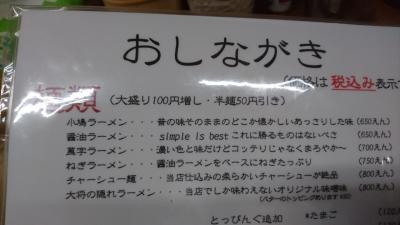 おしながき
(価格は 税込み 表示で
麺類 (大盛り100円増し・半麺50円引き)
小鳩ラーメン・・・昔の味そのままのどこか懐かしいあっさりした味 (650えん)
醤油ラーメン・・・simple is best これに勝るものはないべさ (650えん)
菫字ラーメン・・・濃い色と味だけどコッテリじゃなくまろやか〜 (700えん)
ねぎラーメン・・・醤油ラーメンをベースにねぎたっぷり (750えん)
チャーシュー麺・・・当店仕込みの柔らかいチャーシューが絶品 (800えん)
大将の隠れラーメン・・・当店でしか味わえないオリジナル味噌味 (800えん)
(バターのトッピングあります ¥80)
とっぴんぐ追加 *たまご